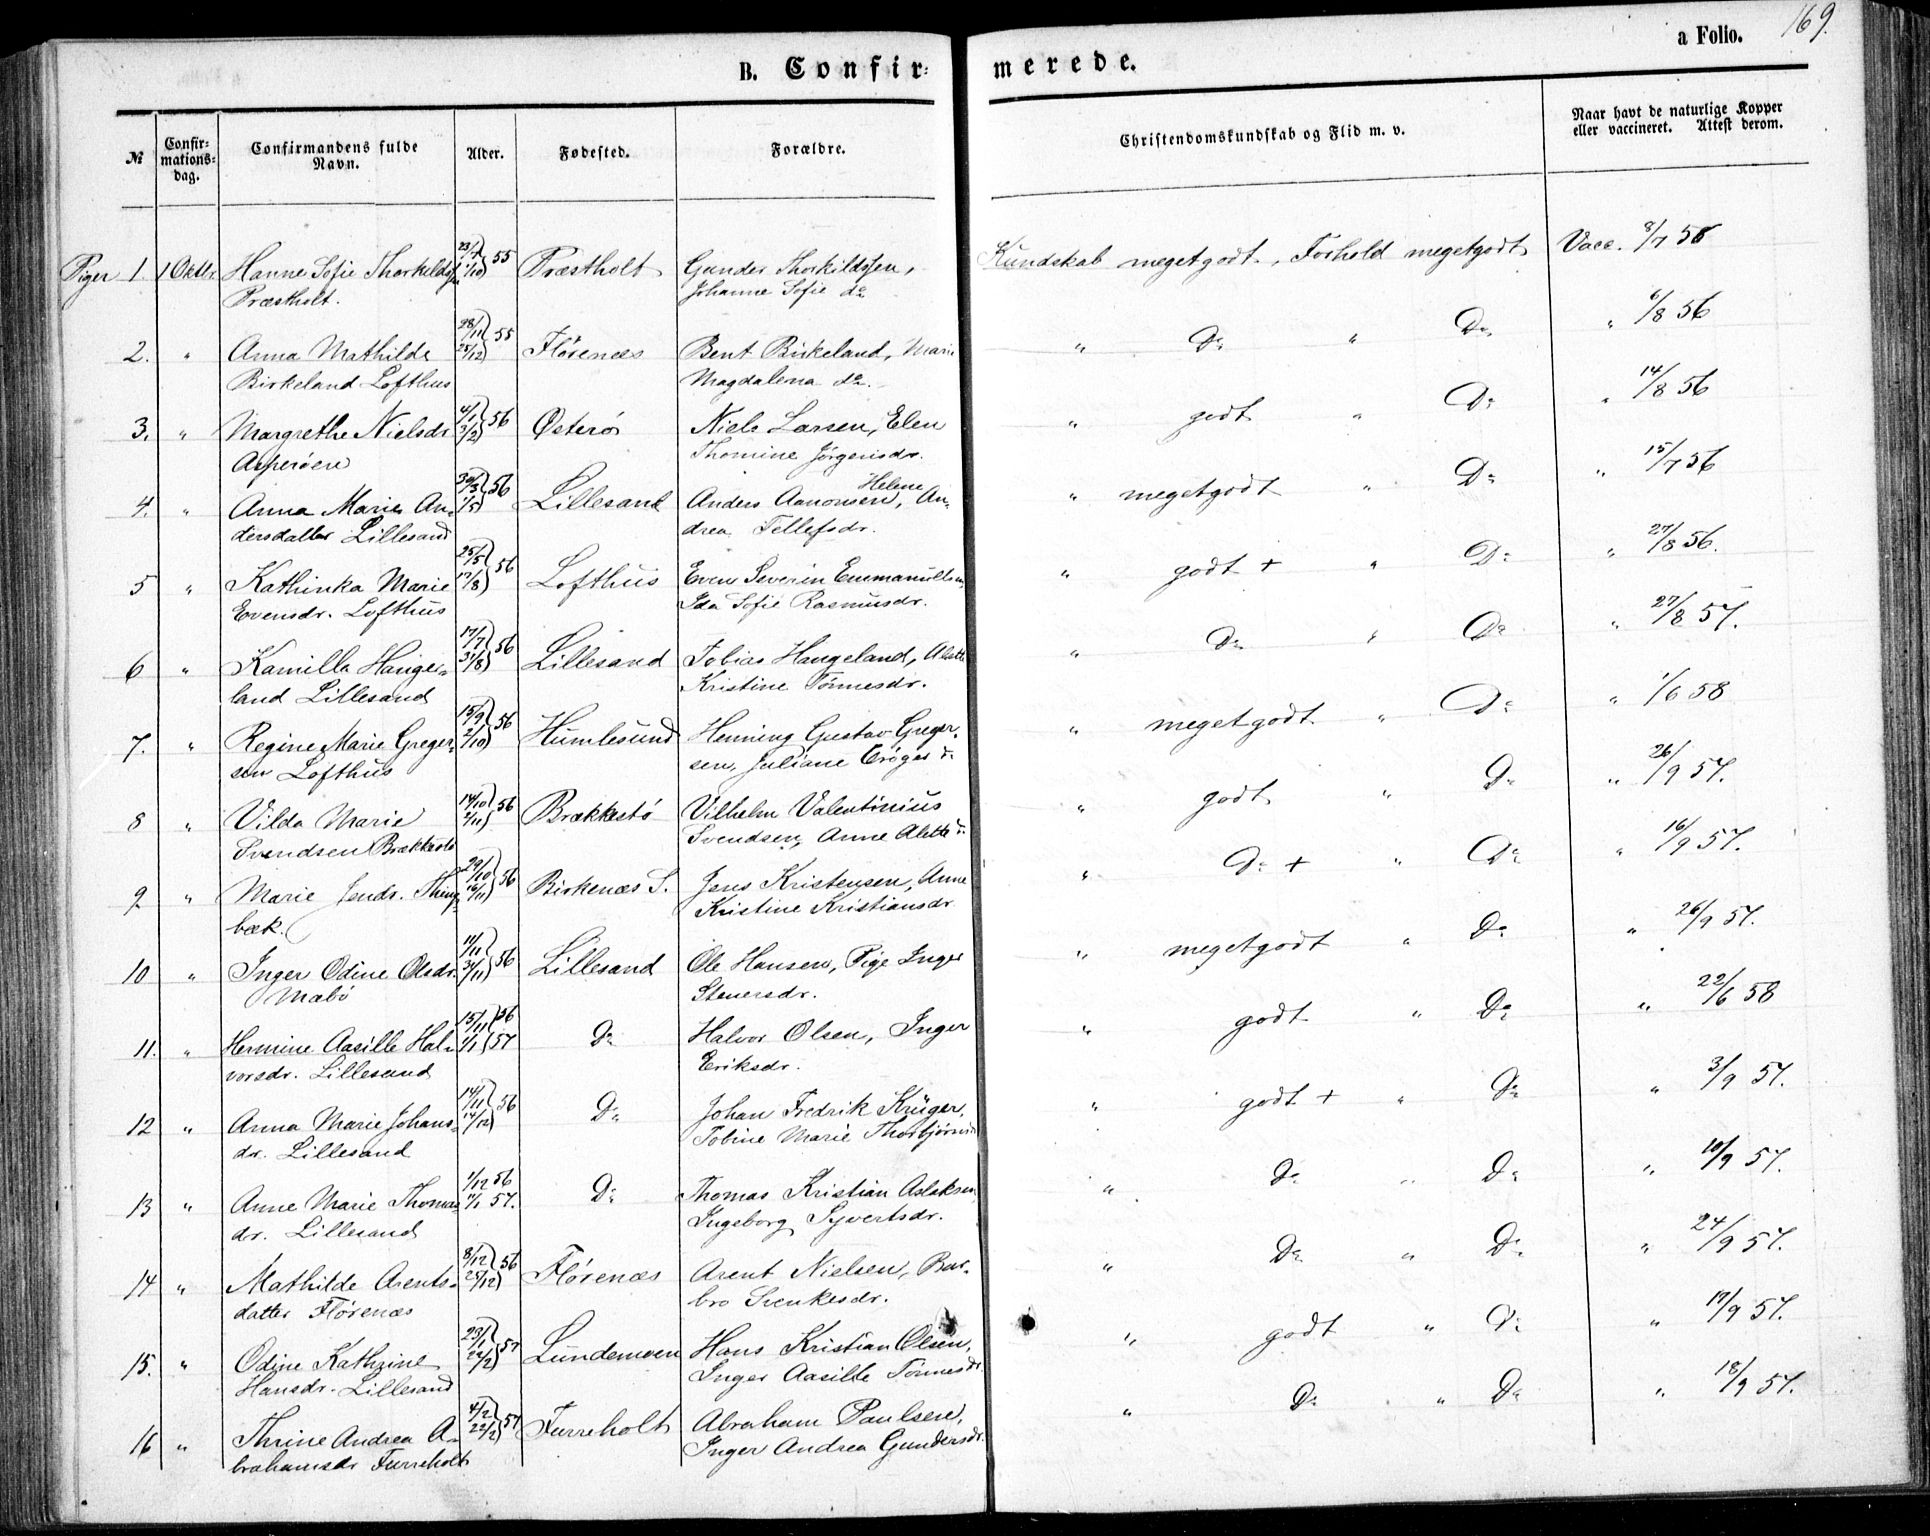 169.
a Folio.
B. Confir-merede.
№ Confir-mations-dag. Confirmandens fulde Navn. Alder. Fødested. Forældre. Christendomskundskab og Flid m. v. Naar havt de naturlige Kopper eller vaccineret. Attest derom.
Piger 1. 1 Oktbr. Hanne Sofie Thorkilds 23/7 55 Præstholt Gunder Thorkildssen, Kundskab megetgodt. Forhold megetgodt Vacc. 8/7 56
Præstholt. 1/10 Johanne Sofie do
2. " Anna Mathilde 28/11 55 Flørenæs Bent Birkeland, Marie " Do " Do " 6/8 56
Birkeland Lofthus 25/12 Magdalena do.
3. " Margrethe Nielsdr 4/1 56 Østerø Niels Larsen, Elen " godt " Do " 14/8 56
Asperøen 3/2 Thomine Jörgensdr.
4. " Anna Marie An- 30/3 56 Lillesand Anders Aanonsen, Helene An- " megetgodt " Do " 15/7 56
dersdatter Lillesand 1/5 drea Tellefsdr.
5 " Kathinka Marie 25/5 56 Lofthus Even Severin Emmanuels " godt + " Do " 27/8 56.
Evensdr. Lofthus 17/8 Ida Sofie Rasmusdr.
6 " Kamilla Hauge- 17/7 56 Lillesand Tobias Haugeland, Alette " Do " Do " 27/8 57.
land Lillesand 31/8 Kristine Tönnesdr.
7. " Regine Marie Greger- 15/9 56 Humlesund Henning Gustav Greger- " megetgodt " Do " 1/6 58
sen Lofthus 2/10 sen, Juliane Crøger do
8 " Vilda Marie 14/10 56 Brækkestö Vilhelm Valentinius " godt " Do " 26/9 57.
Svendsen Brækkestö 2/11 Svendsen, Anne Alette do
9 " Marie Jensdr. Thing- 29/10 56 Birkenæs S. Jens Kristensen, Anne " Do + " Do " 16/9 57.
bæk. 16/11 Kristine Kristiansdr
10 " Inger Odine Olsdr. 11/11 56 Lillesand Ole Hansen, Pige Inger " megetgodt " Do " 26/9 57.
Mæbö 30/11 Stenersdr.
11. " Hermine Aasille Hal- 15/11 56 Do Halvor Olsen, Inger " godt " Do " 22/6 58
vorsdr. Lillesand 1/1 57 Eriksdr.
12 " Anna Marie Johans- 14/11 56 Do Johan Fredrik Krüger, " godt + " Do " 3/9 57.
dr. Lillesand 14/12 Tobine Marie Thorbjörns
13 " Anne Marie Thomas- 1/12 56 Do Thomas Kristian Aslaksen, " Do " Do " 10/9 57.
dr. Lillesand 11/1 57. Ingeborg Syvertsdr.
14 " Mathilde Arents- 8/12 56 Flørenæs Arent Nielsen, Bar- " Do " Do " 24/9 57.
datter Flørenæs 25/12 bro Svenkesdr.
15. " Odine Kathrine 23/1 57 Lundemoen Hans Kristian Olsen, " godt " Do " 17/9 57.
Hansdr. Lillesand 22/2 Inger Aasille Tönnesdr.
16 " Thrine Andrea A- 4/2 57 Furreholt Abraham Paulsen, " Do " Do " 18/9 57.
brahamsdr Furreholt 22/2 Inger Andrea Gundersdr.